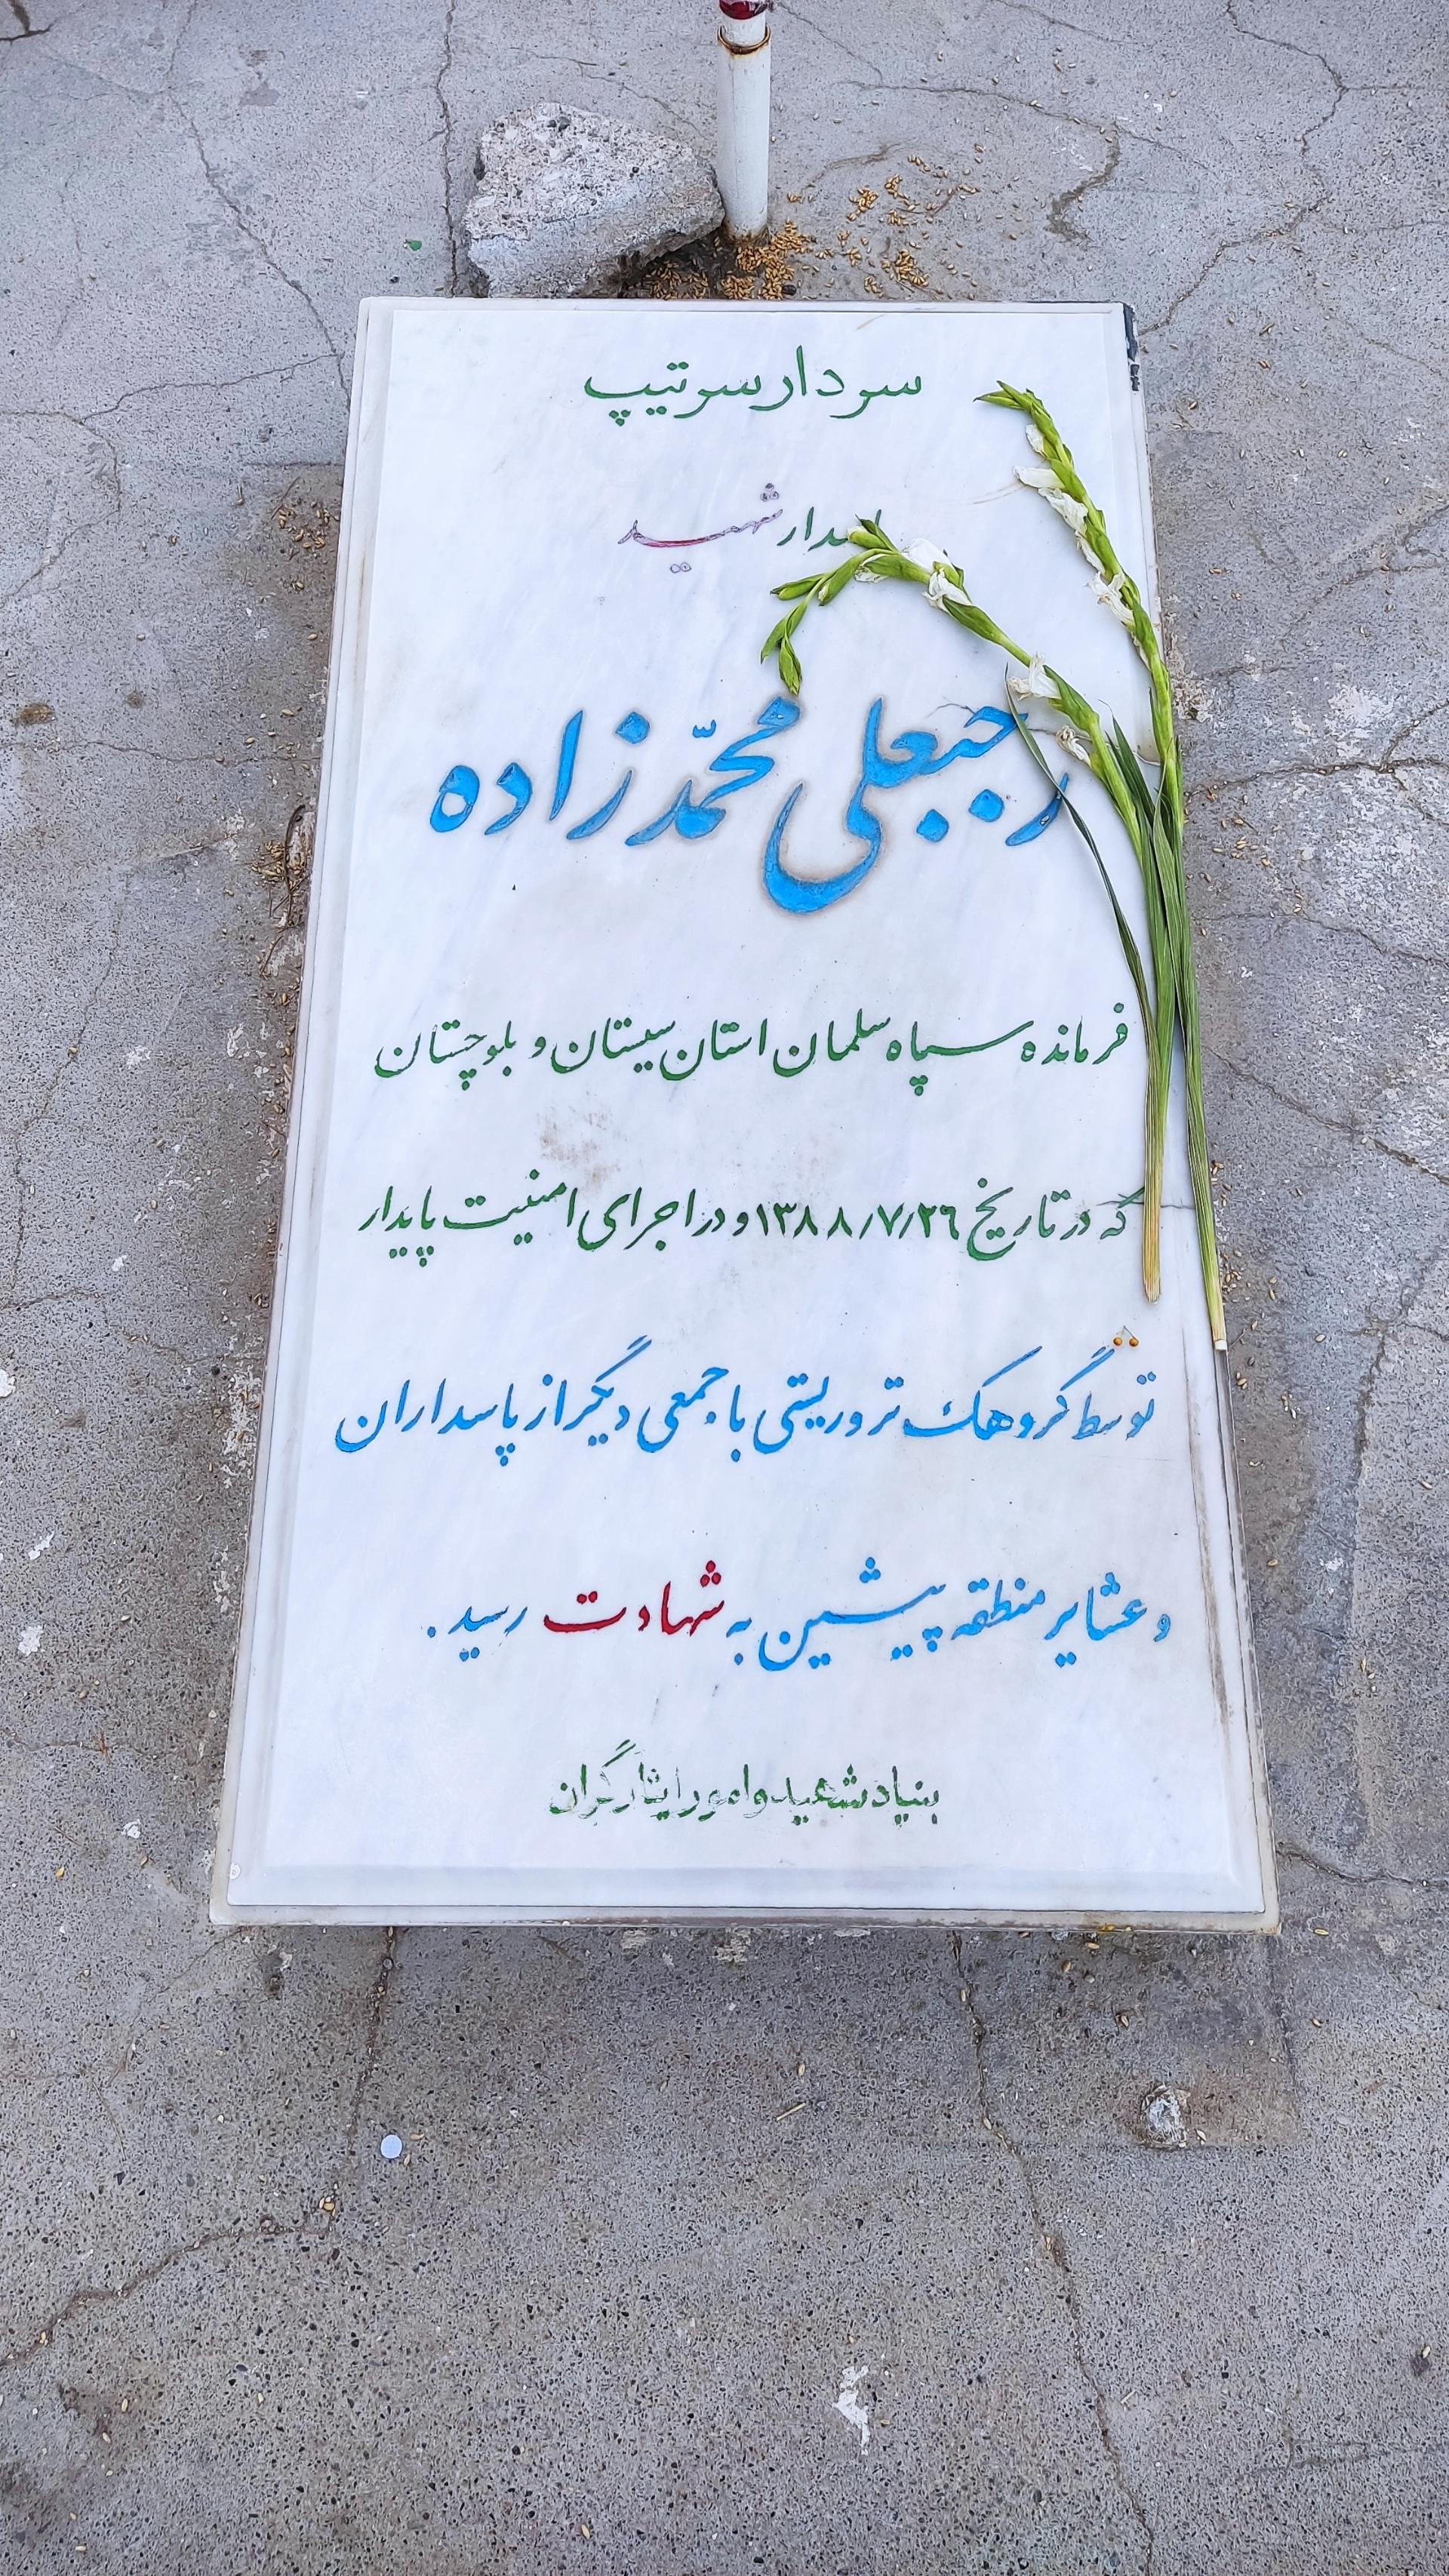 سردار سرتیپ
شهید
رجبعلی محمّدزاده
فرمانده سپاه سلمان استان سیستان و بلوچستان
که در تاریخ ۱۳۸۸/۷/۲۶ و در اجرای امنیت پایدار
توسط گروهک تروریستی با جمعی دیگر از پاسداران
و عشایر منطقه پیشین به شهادت رسید.
بنیاد شهید و امور ایثارگران